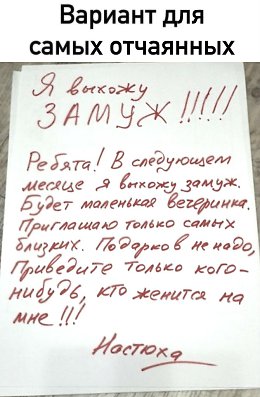 Вариант для
самых отчаянных
Я выхожу
ЗАМУЖ !!!!!
Ребята! В следующем
месяце я выхожу замуж.
Будет маленькая вечеринка.
Приглашаю только самых
близких. Подарков не надо,
Приведите только кого-
нибудь, кто женится на
мне !!!
Настюха